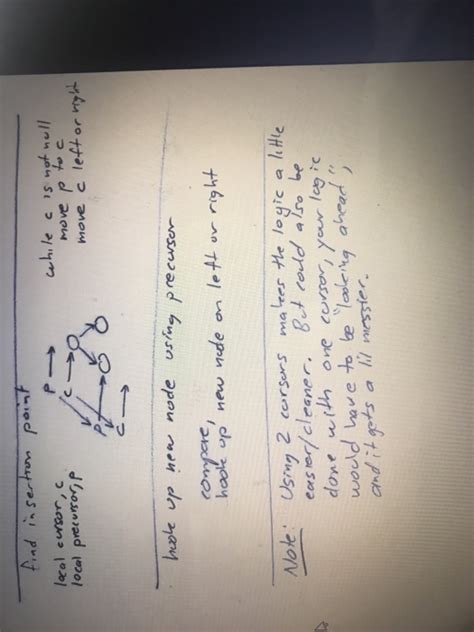 find insertion point
local cursor, c
local precursor, p
p
c
p
c
while c is not null
move p to c
move c left or right
hook up new node using precursor
compare,
hook up new node on left or right
Note: Using 2 cursors makes the logic a little
easier/cleaner. But could also be
done with one cursor, your logic
would have to be "looking ahead",
and it gets a lil messier.